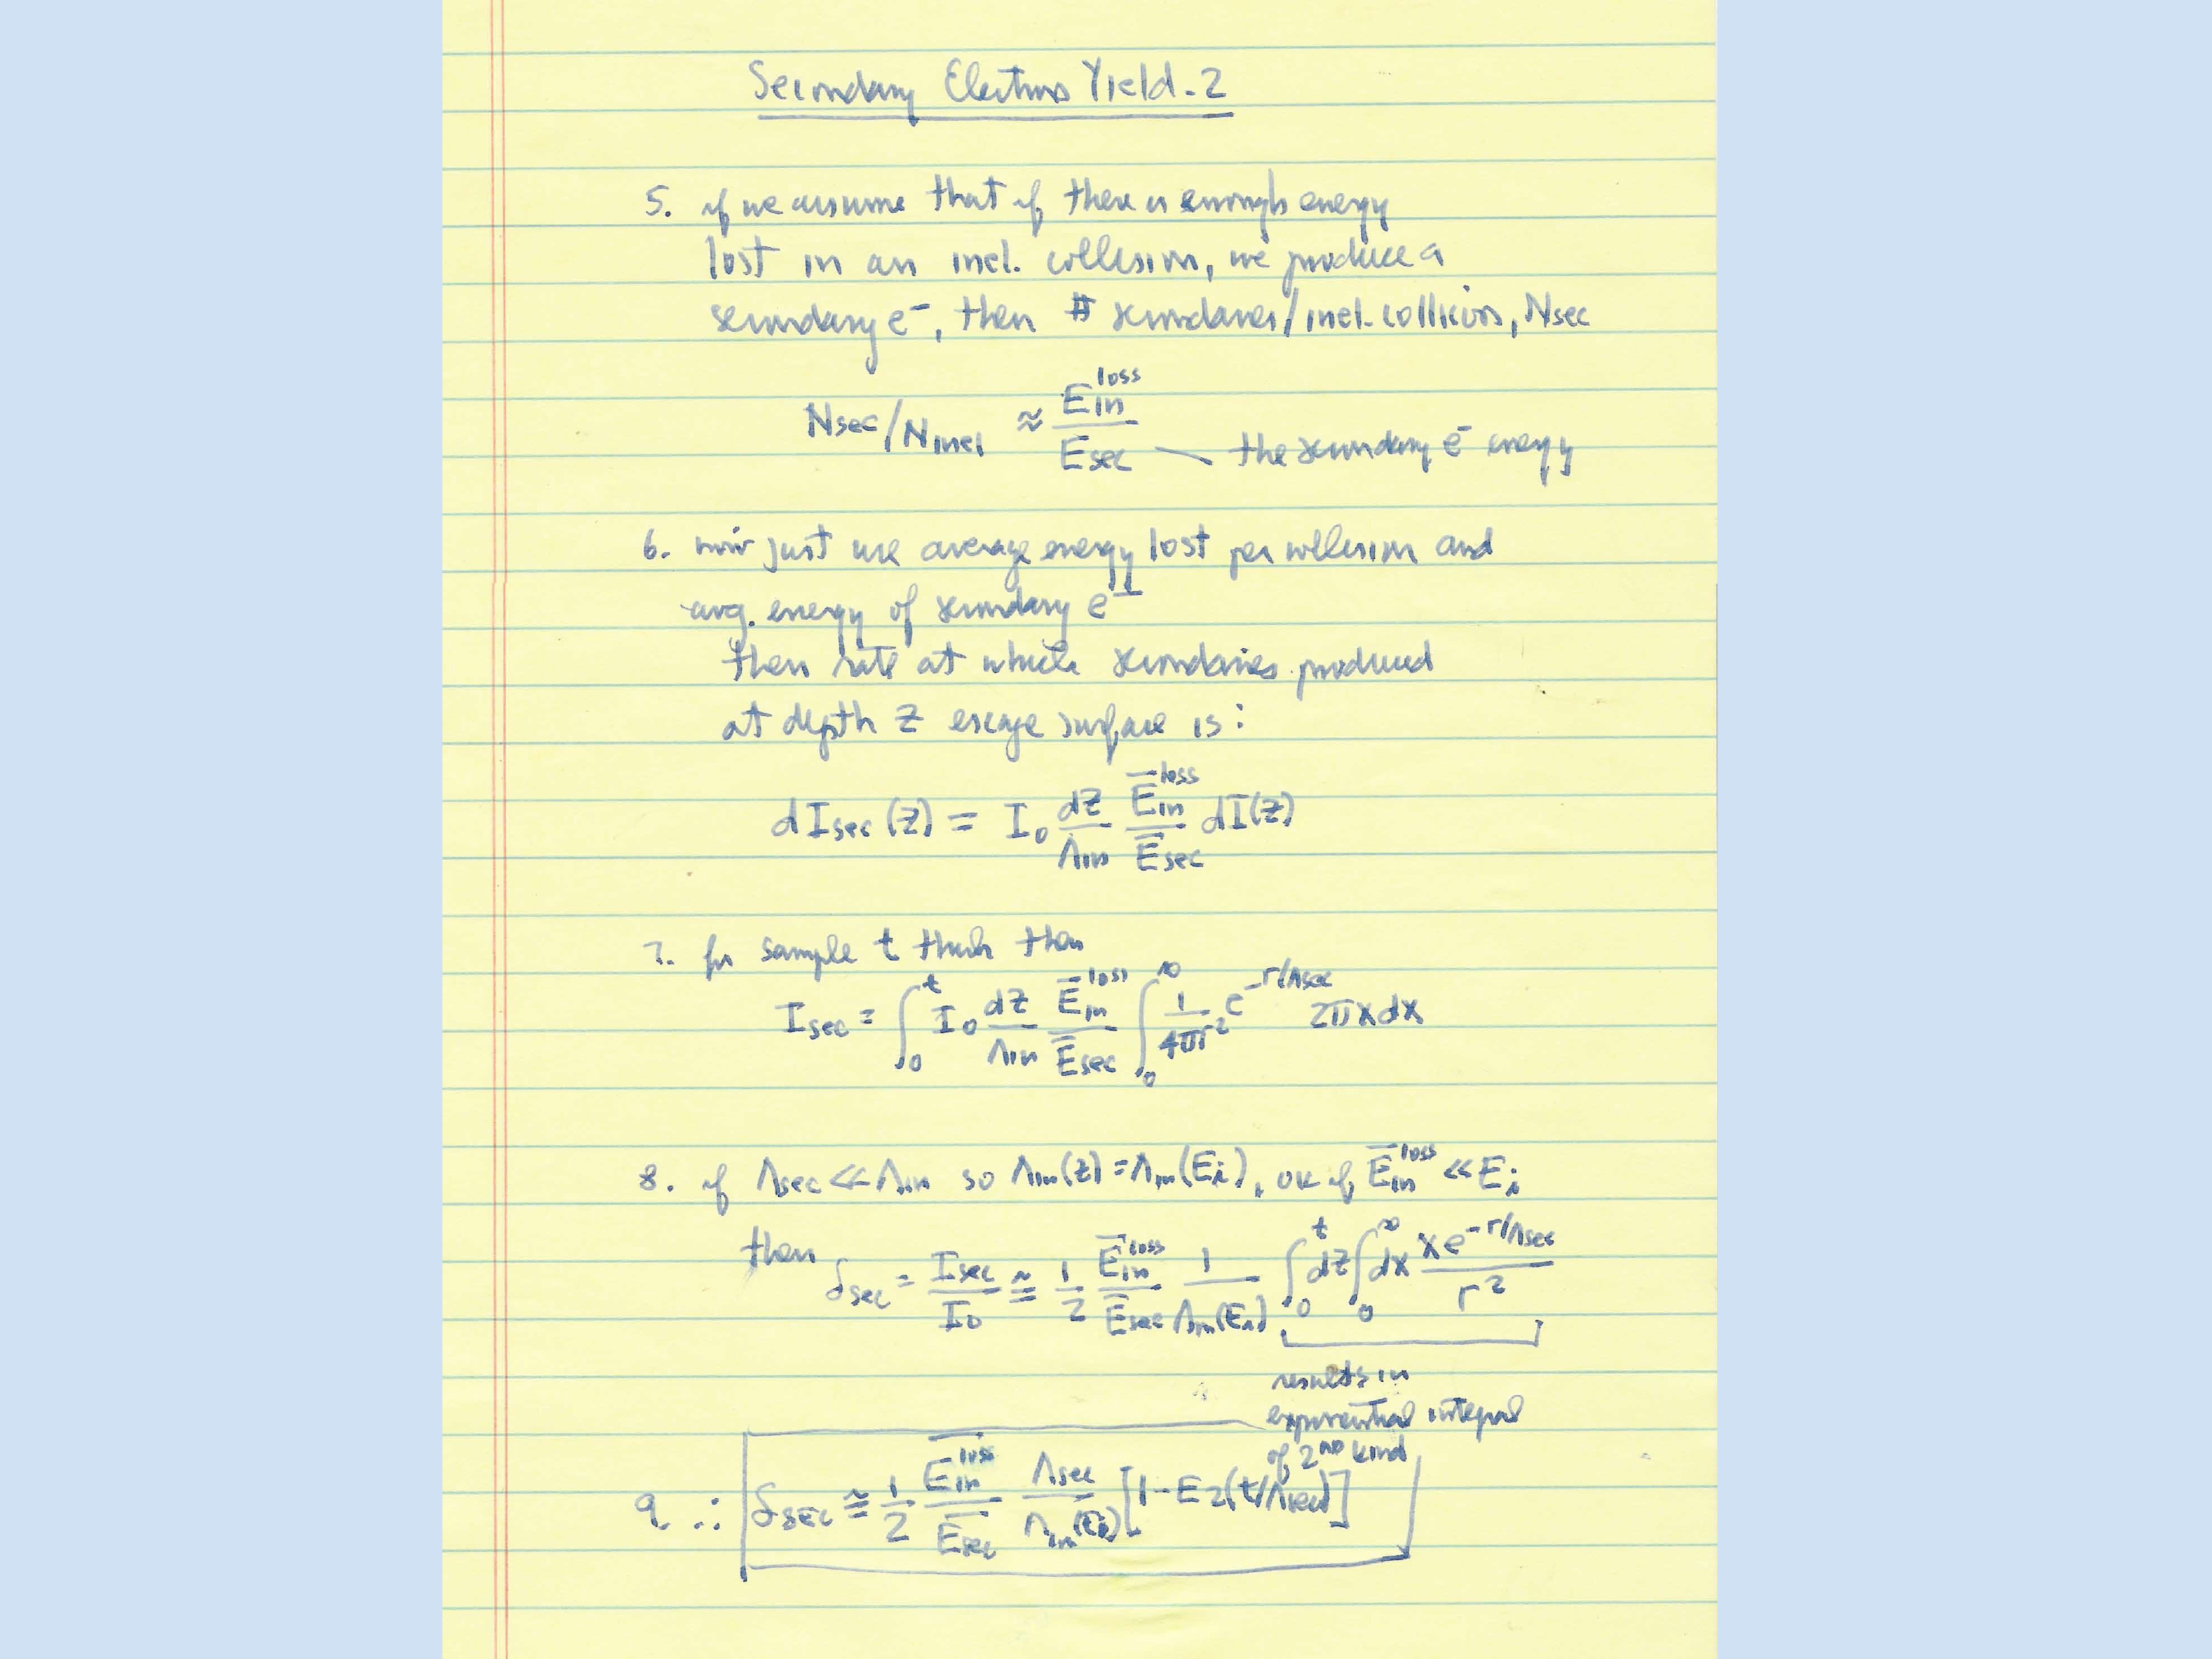 Secondary Electrons Yield - 2
5. if we assume that if there is enough energy
lost in an inel. collision, we produce a
secondary e⁻, then # secondaries/inel. collision, Nsec
Nsec/Ninel ≈ E_in^loss / Esec — the secondary e⁻ energy
6. now just use average energy lost per collision and
avg. energy of secondary e⁻
then rate at which secondaries produced
at depth z escape surface is:
dIsec(z) = I₀ dz/Λin Ē_in^loss/Ēsec dI(z)
7. for sample t thick then
Isec = ∫₀^t I₀ dz/Λin Ē_in^loss/Ēsec ∫₀^∞ 1/4πr² e^(-r/Λsec) 2πxdx
8. if Λsec << Λin so Λin(z) = Λin(Ei), ok if Ē_in^loss << Ei
then δsec = Isec/I₀ ≅ 1/2 Ē_in^loss/Ēsec 1/Λin(Ei) ∫₀^t dz ∫₀^∞ dx x e^(-r/Λsec)/r²
results in
exponential integral
of 2nd kind
9. ∴ δsec ≅ 1/2 Ē_in^loss/Ēsec Λsec/Λin(Ei) [1 - E2(t/Λsec)]